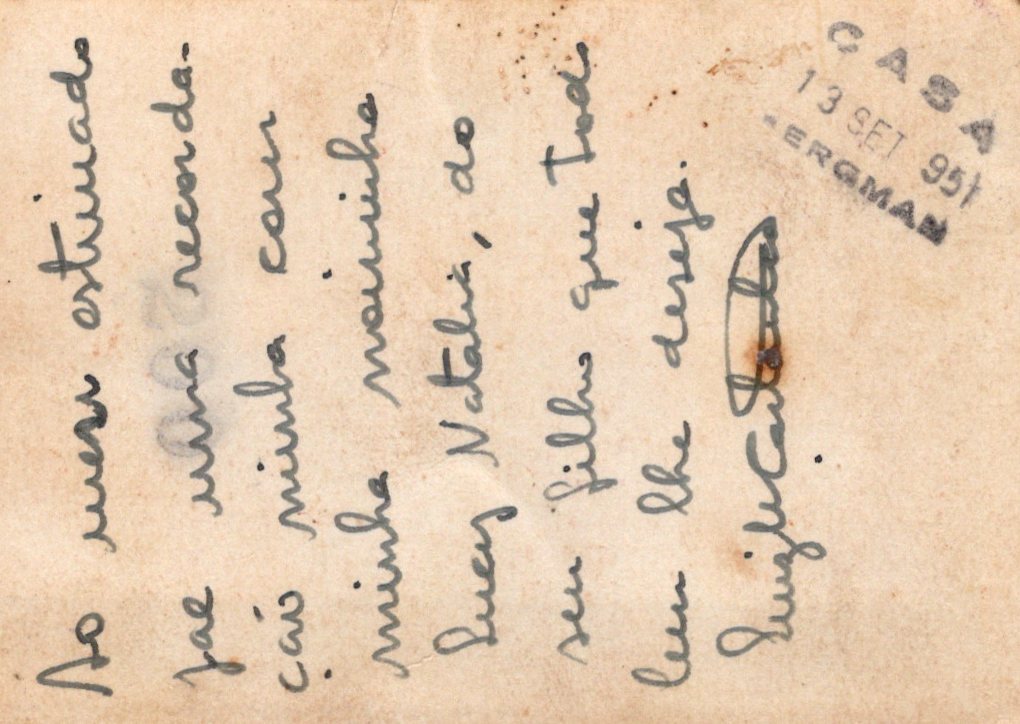 Ao meu estimado
pae uma recorda-
ção minha com
minha noivinha
Lucy Natalia, do
seu filho que todo
bem lhe deseja.
Luiz
CASA
13 SET 951
BERGMAN